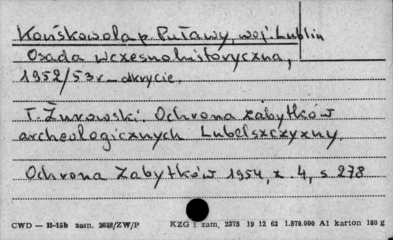 Końskowola p. Puławy, woj. Lublin
Osada wczesnohistoryczna,
1952/53 r. odkrycie.
T. Żurowski. Ochrona zabytków
archeologicznych Lubelszczyzny.
Ochrona Zabytków 1954, z. 4, s. 278
CWD — B-15b zam. 2632/ZW/P KZG 1 zam. 2375 19 12 62 1.570.000 A1 karton 180 g